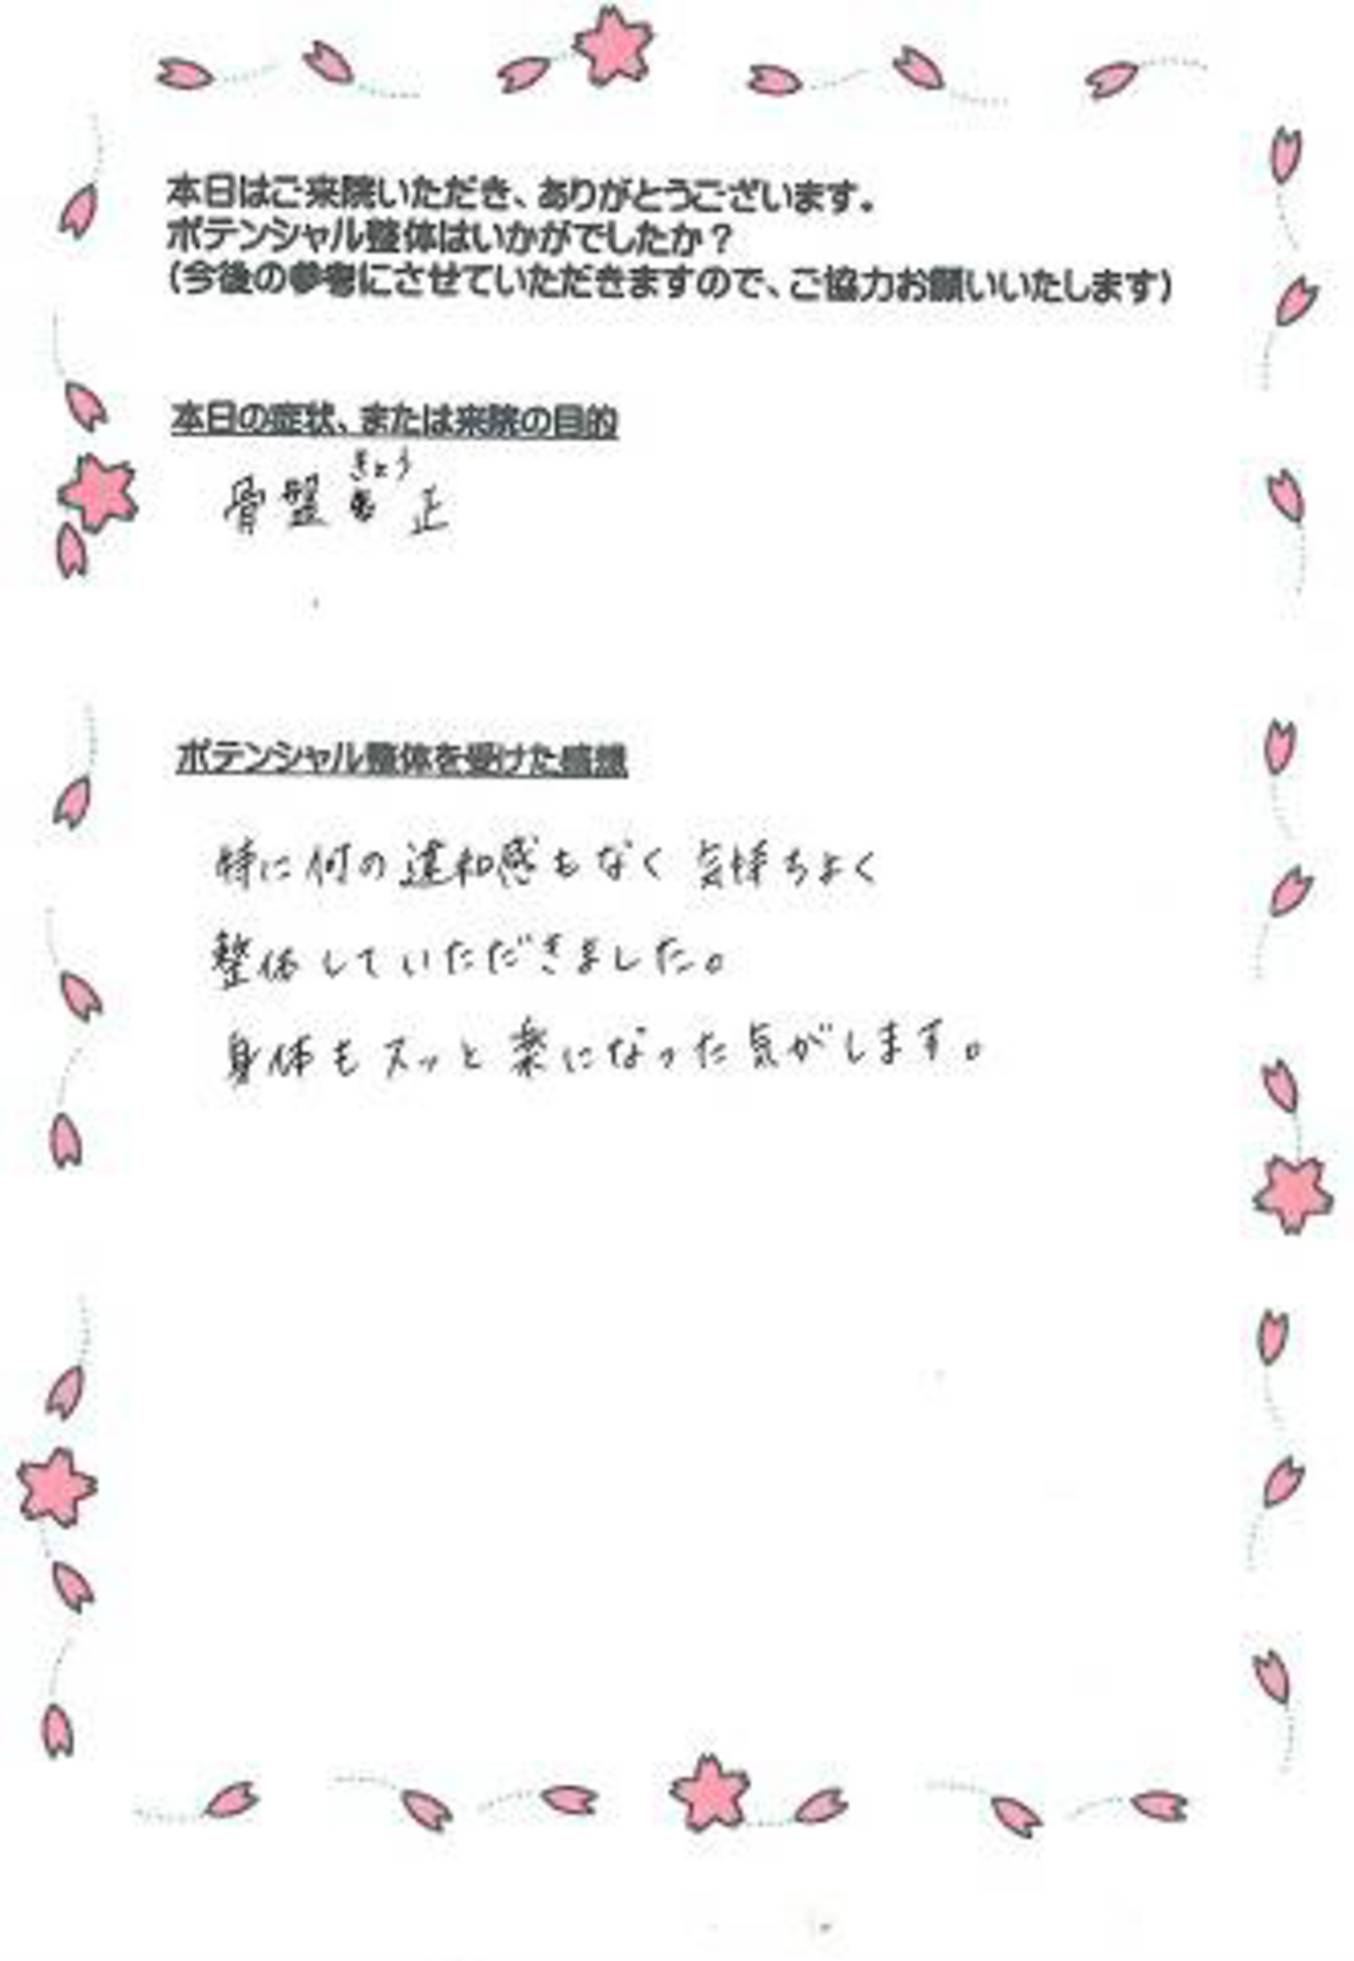 本日はご来院いただき、ありがとうございます。
ポテンシャル整体はいかがでしたか？
（今後の参考にさせていただきますので、ご協力お願いいたします）
本日の症状、または来院の目的
骨盤きょう正
ポテンシャル整体を受けた感想
特に何の違和感もなく気持ちよく
整体していただきました。
身体もスッと楽になった気がします。